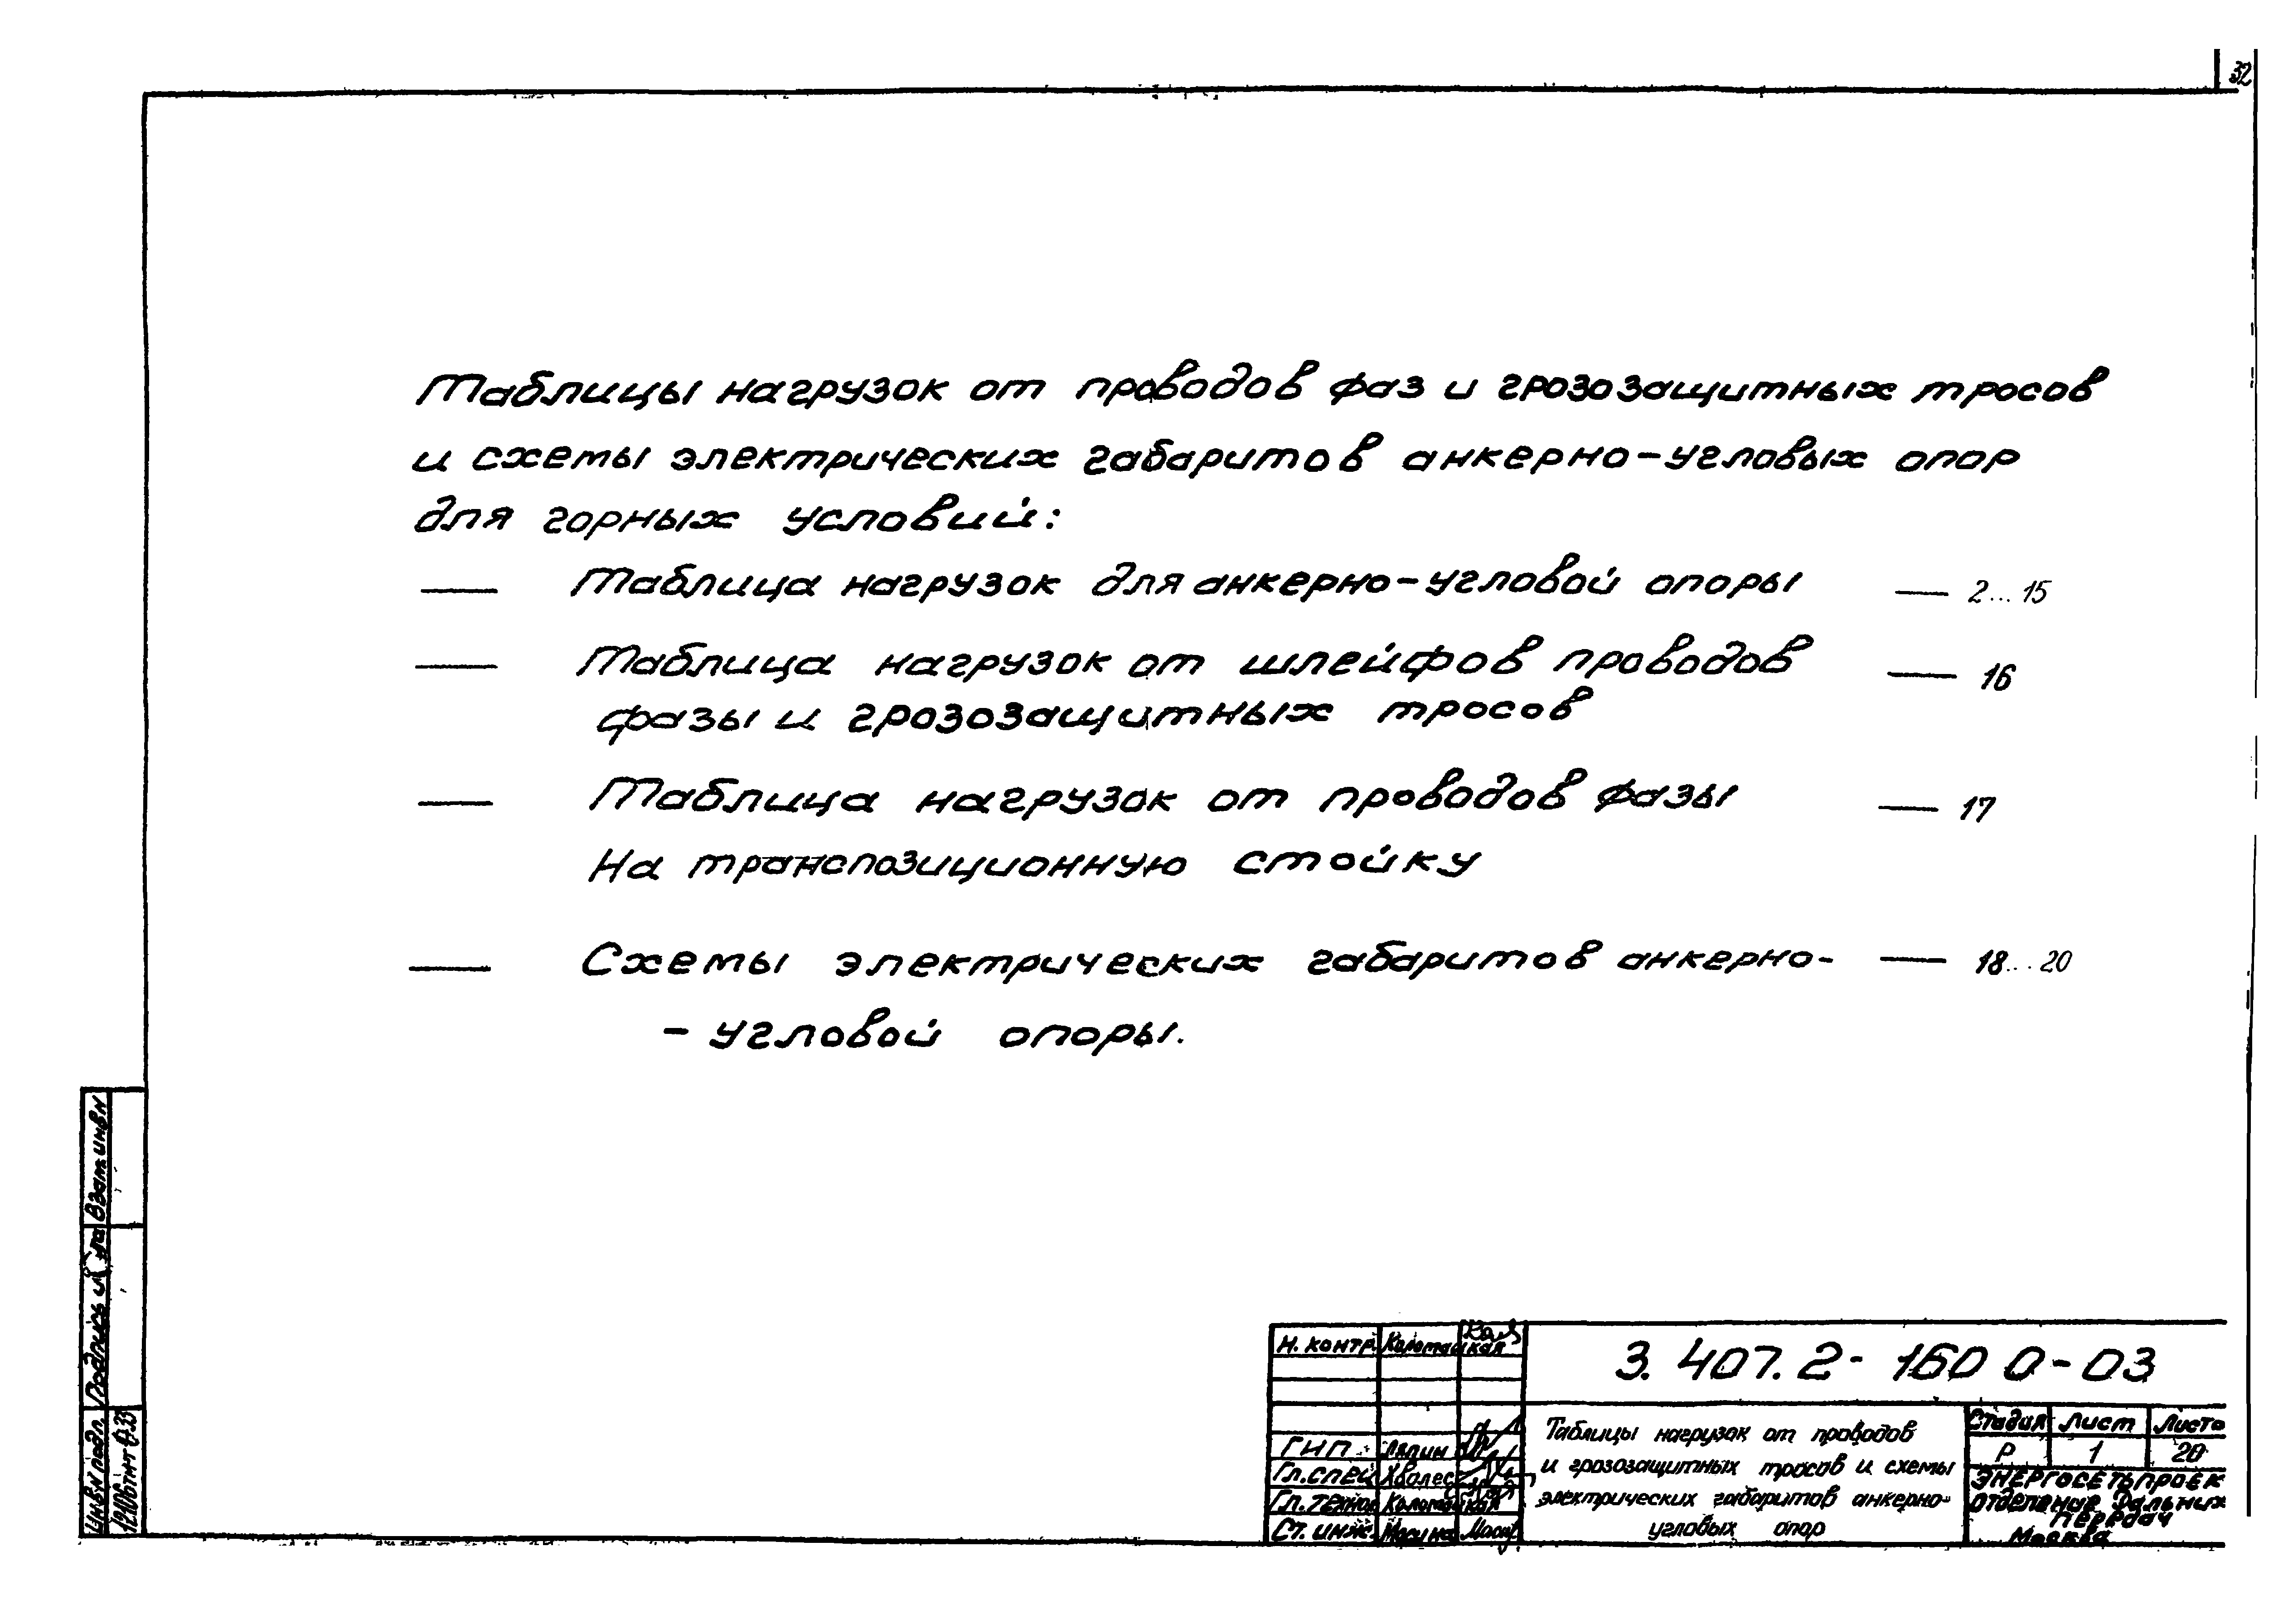 32
Таблицы нагрузок от проводов фаз и грозозащитных тросов
и схемы электрических габаритов анкерно-угловых опор
для горных условий:
— Таблица нагрузок для анкерно-угловой опоры — 2...15
— Таблица нагрузок от шлейфов проводов — 16
фазы и грозозащитных тросов
— Таблица нагрузок от проводов фазы — 17
На транспозиционную стойку
— Схемы электрических габаритов анкерно- — 18...20
- угловой опоры.
Взам инв N
Подпись и
Инв N подл.
Н. контр. Коломацкая
3.407.2-160 0-03
ГИП Ляпин
Гл.спец Хволес
Гл.технол Коломацкая
Ст. инж. Мосина
Таблицы нагрузок от проводов
и грозозащитных тросов и схемы
электрических габаритов анкерно-
угловых опор
Стадия Лист Листо
Р 1 20
ЭНЕРГОСЕТЬПРОЕК
отделение Дальних
передач
Москва